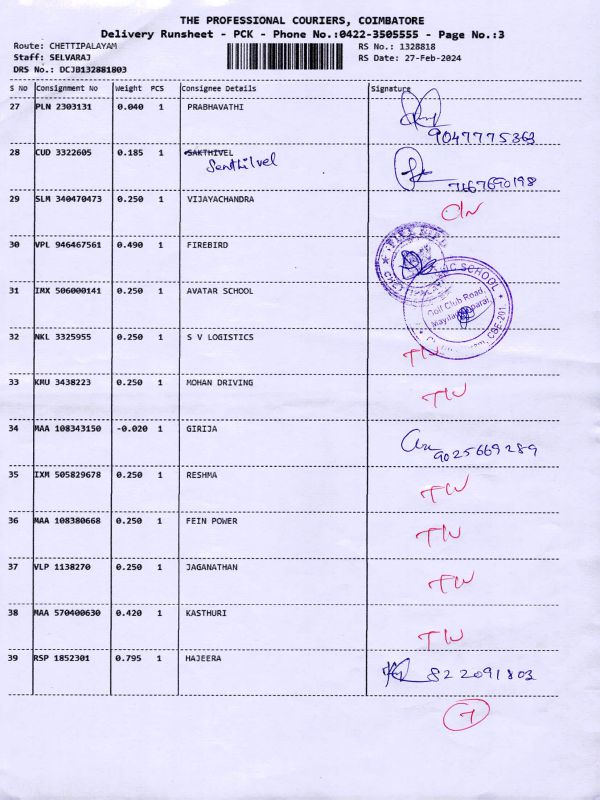 THE PROFESSIONAL COURIERS, COIMBATORE
Delivery Runsheet - PCK - Phone No.:0422-3505555 - Page No.:3
Route: CHETTIPALAYAM RS No.: 1328818
Staff: SELVARAJ RS Date: 27-Feb-2024
DRS No.: DCJB132881803
S No Consignment No Weight PCS Consignee Details Signature
27 PLN 2303131 0.040 1 PRABHAVATHI
9047775363
28 CUD 3322605 0.185 1 SAKTHIVEL
Senthilvel
7667690198
29 SLM 340470473 0.250 1 VIJAYACHANDRA
30 VPL 946467561 0.490 1 FIREBIRD
31 IMX 506000141 0.250 1 AVATAR SCHOOL
SCHOOL
Golf Club Road
CBE-201
32 NKL 3325955 0.250 1 S V LOGISTICS TW
33 KMU 3438223 0.250 1 MOHAN DRIVING TW
34 MAA 108343150 -0.020 1 GIRIJA
9025669289
35 IXM 505829678 0.250 1 RESHMA TW
36 MAA 108380668 0.250 1 FEIN POWER TW
37 VLP 1138270 0.250 1 JAGANATHAN TW
38 MAA 570400630 0.420 1 KASTHURI TW
39 RSP 1852301 0.795 1 HAJEERA 822091803
7